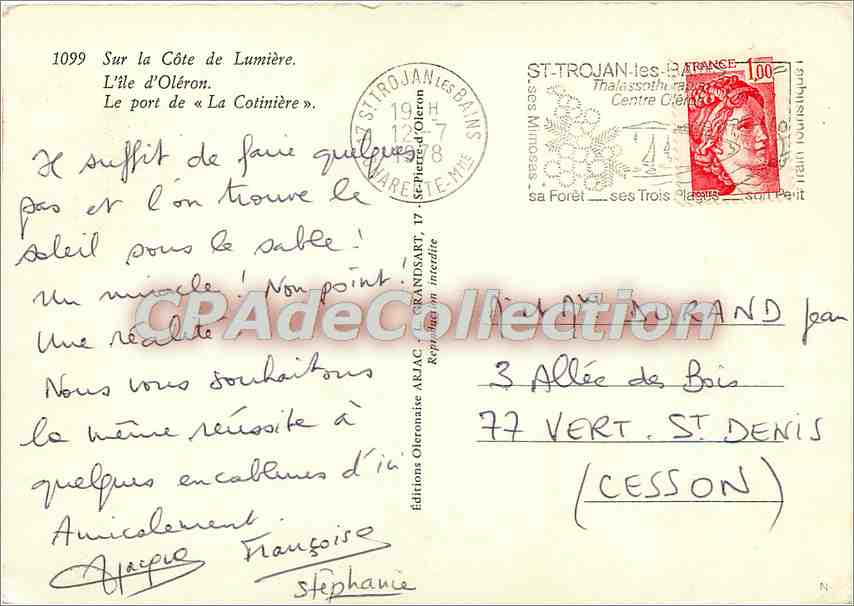 1099 Sur la Côte de Lumière.
L'île d'Oléron.
Le port de « La Cotinière ».
Il suffit de faire quelques
pas et l'on trouve le
soleil sous le sable !
Un miracle ! Non point !
Une réalité
Nous vous souhaitons
la même réussite à
quelques encablures d'ici
Amicalement
Jacques Françoise
Stéphanie
Éditions Oleronaise ARJAC - GRANDSART, 17 - St-Pierre-d'Oleron
Reproduction interdite
17 ST TROJAN LES BAINS
19 H
12-7
1978
CHARENTE-Mme
ST-TROJAN-les-BAINS
Thalassothérapie
Centre Oléron
ses Mimosas
sa Forêt ses Trois Plages son Petit
Train Touristique
FRANCE 1,00
POSTES
DURAND Jean
3 Allée des Bois
77 VERT. ST DENIS
(CESSON)
CPAdeCollection
N